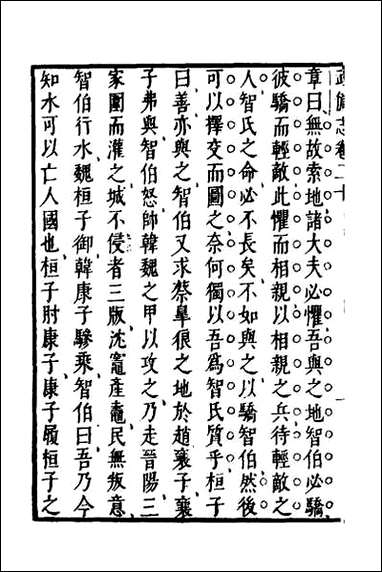 武備志卷二十
章曰無故索地諸大夫必懼吾與之地智伯必驕
彼驕而輕敵此懼而相親以相親之兵待輕敵之
人智氏之命必不長矣不如與之以驕智伯然後
可以擇交而圖之奈何獨以吾爲智氏質乎桓子
曰善亦與之智伯又求蔡臯很之地於趙襄子襄
子弗與智伯怒帥韓魏之甲以攻之乃走晉陽三
家圍而灌之城不侵者三版沈竈產鼃民無叛意
智伯行水魏桓子御韓康子驂乘智伯曰吾乃今
知水可以亡人國也桓子肘康子康子履桓子之